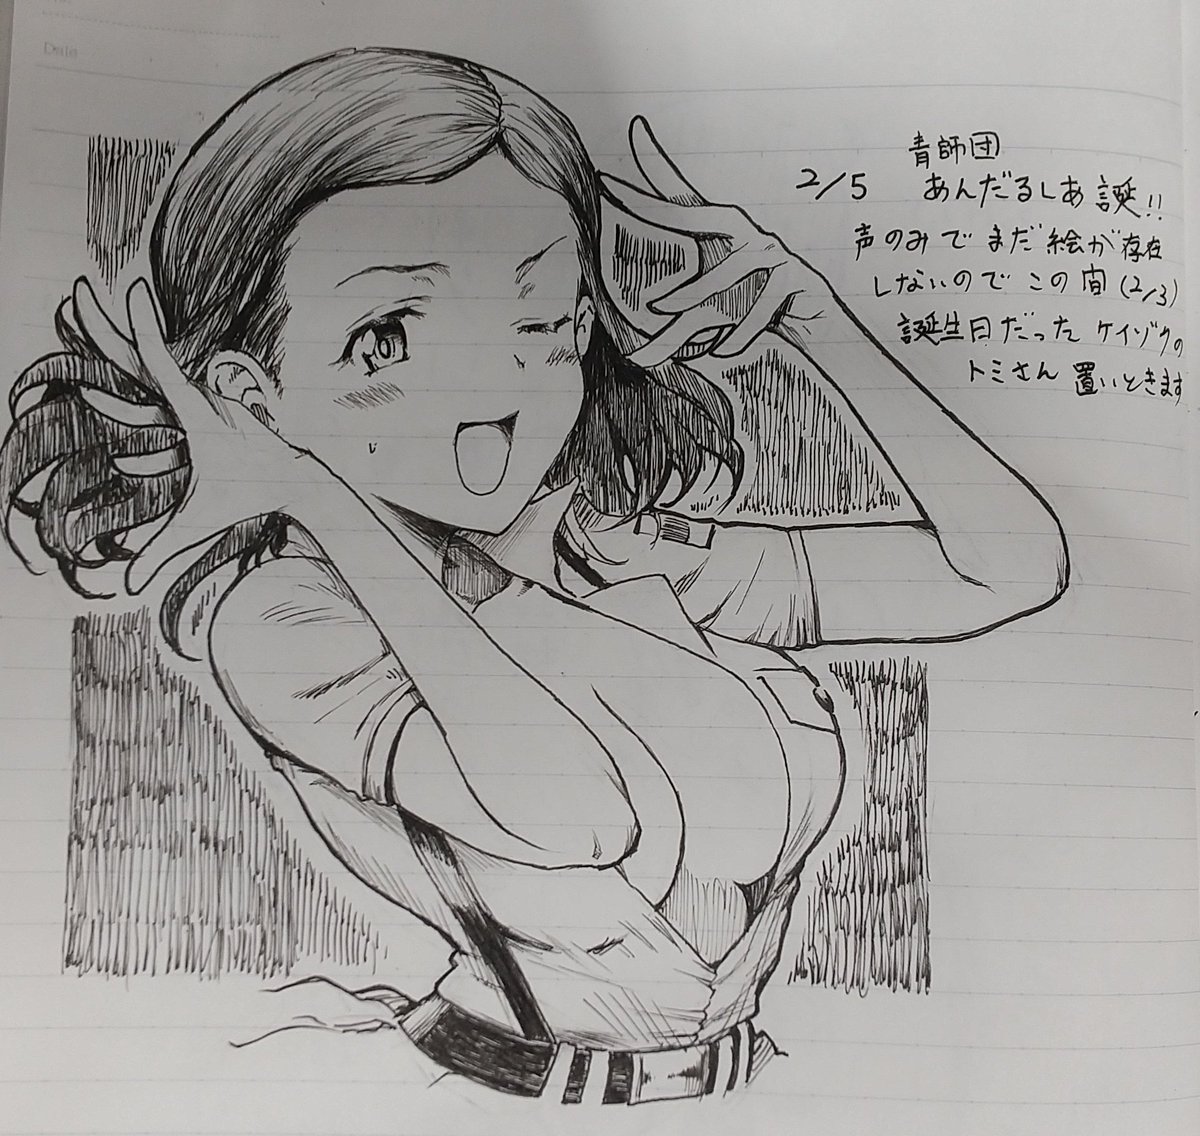 Date
青師団
2/5 あんだるしあ誕!!
声のみでまだ絵が存在
しないのでこの間(2/3)
誕生日だったケイゾクの
トミさん 置いときます